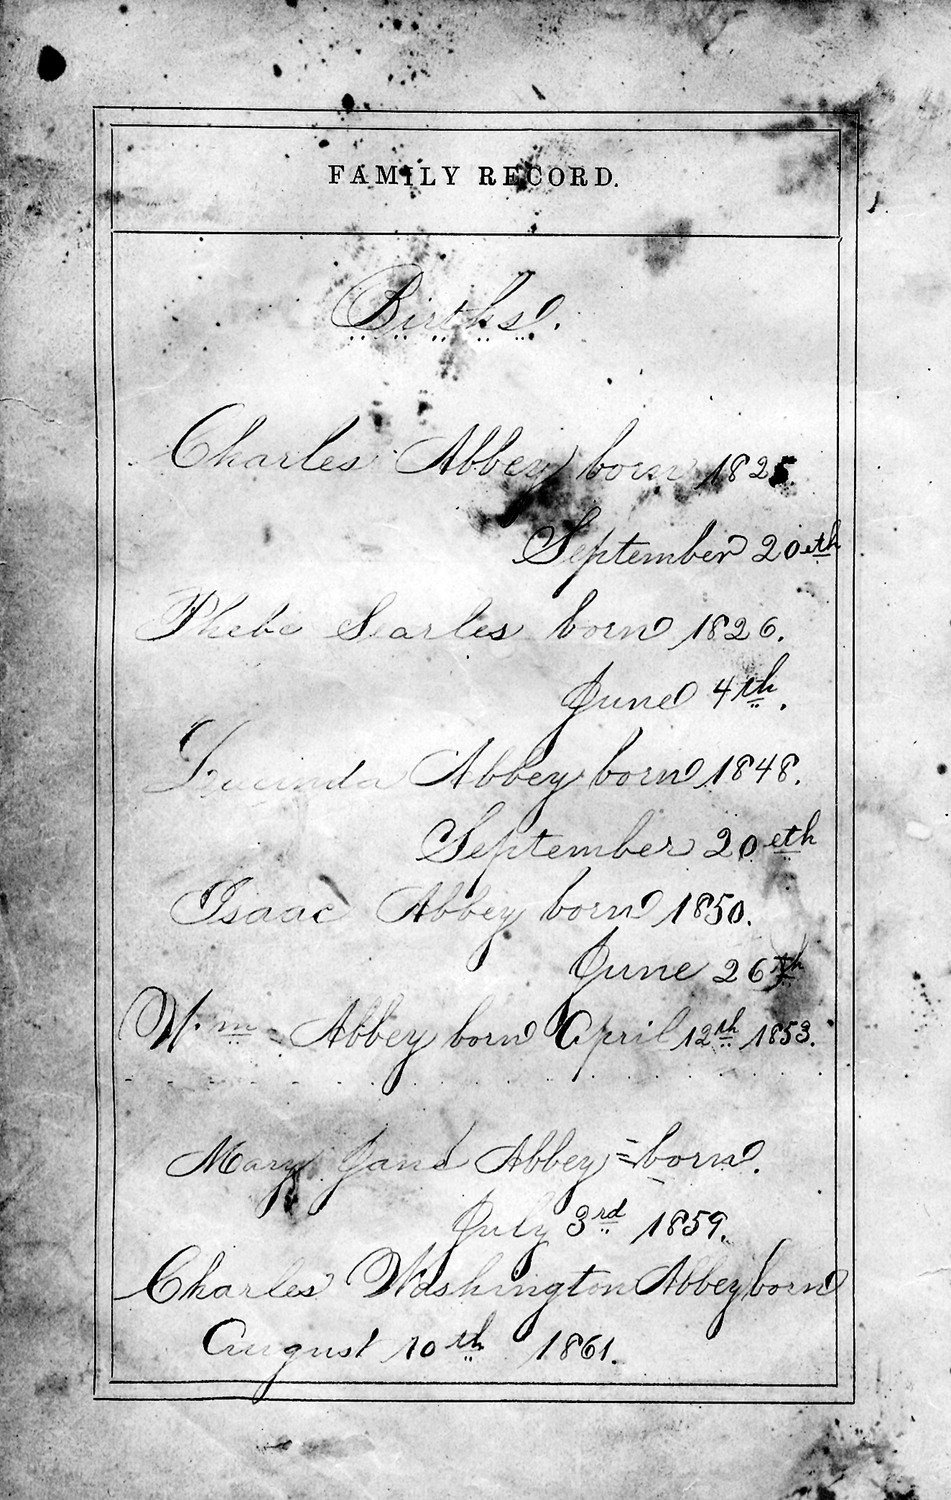 FAMILY RECORD.
Births.
Charles Abbey born 1825.
September 20eth
Phebe Searles born 1826.
June 4th.
Lucinda Abbey born 1848.
September 20eth
Isaac Abbey born 1850.
June 26th
Wm Abbey born April 12th 1853.
Mary Jane Abbey = born.
July 3rd 1859.
Charles Washington Abbey born
August 10th 1861.